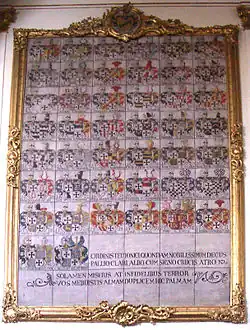 ORDINIS TEUTONICI QUONDAM NOBILISSIMUM DECUS
PALLIO CLARI ALBO CUM SIGNO CRUCIS ATRO
SOLAMEN MISERIS AT INFIDELIBUS TERROR
VOS MERUISTIS ALMAM DUPLICEM HIC PALMAM